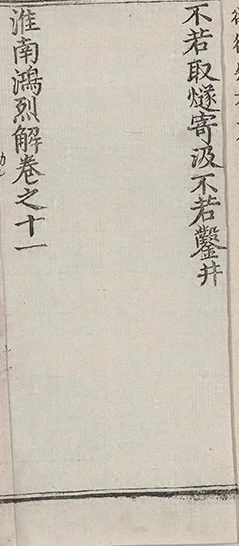 不若取燧寄汲不若鑿井
淮南鴻烈解卷之十一